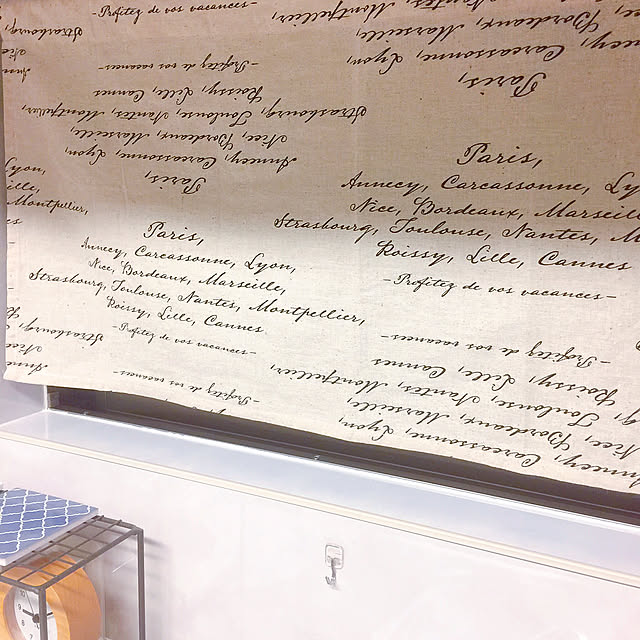 -Profitez de vos vacances-
Montpellier,
Annecy,
Bordeaux, Marseille,
Carcassonne, Lyon,
Paris,
Strasbourg,
-Profitez de vos vacances-
Roissy, Lille, Cannes
Strasbourg, Toulouse, Nantes, Montpellier,
Nice, Bordeaux, Marseille,
Annecy, Carcassonne, Lyon,
Paris,
Paris,
Annecy, Carcassonne, Ly
Nice, Bordeaux, Marseil
Strasbourg, Toulouse, Nantes, M
Roissy, Lille, Cannes
-Profitez de vos vacances-
yon,
ille,
Montpellier,
es
Paris,
Annecy, Carcassonne, Lyon,
Nice, Bordeaux, Marseille,
Strasbourg, Toulouse, Nantes, Montpellier,
Roissy, Lille, Cannes
-Profitez de vos vacances-
-Profitez de vos vacances-
Roissy, Lille, Cannes
Toulouse, Nantes, Montpellier,
Nice, Bordeaux, Marseille,
Annecy, Carcassonne, Lyon,
-Profitez de vos vacances-
Strasbourg,
Nice